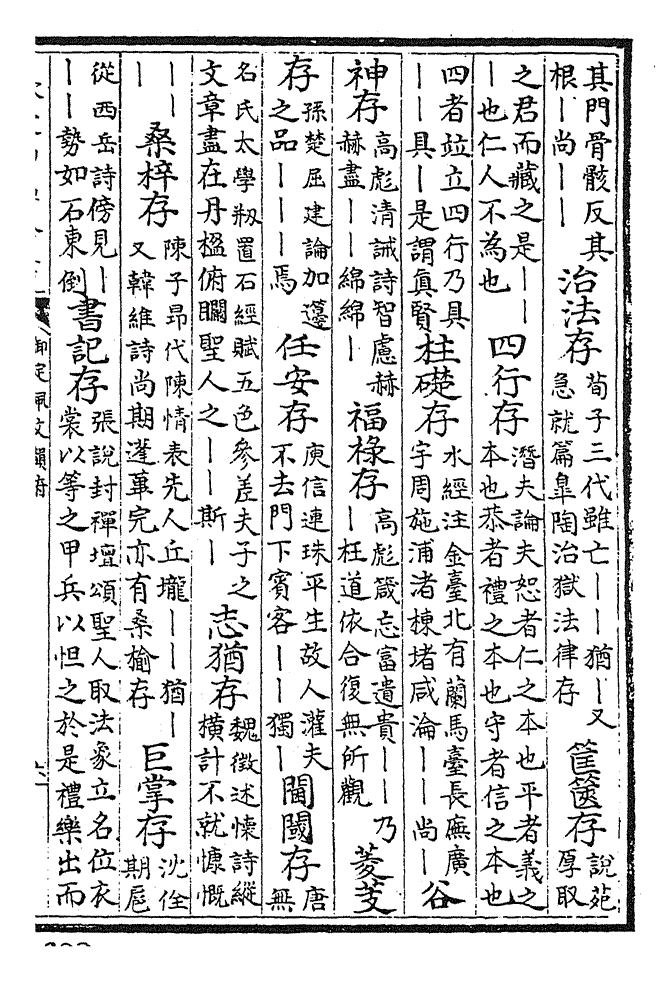 其門骨骸反其根丨尚丨丨治法存荀子三代雖亡丨丨猶丨又急就篇皐陶治獄法律存筐篋存說苑厚取
之君而藏之是丨丨丨也仁人不為也四行存潛夫論夫恕者仁之本也平者義之本也恭者禮之本也守者信之本也
四者竝立四行乃具丨具丨是謂真賢柱礎存水經注金臺北有蘭馬臺長廡廣宇周施浦渚棟堵咸淪丨丨尚丨谷
神存高彪清誡詩智慮赫赫盡丨丨綿綿丨福祿存高彪箴忘富遺貴丨丨乃丨枉道依合復無所觀菱芰
存孫楚屈建論加籩之品丨丨丨焉任安存庾信連珠平生故人灌夫不去門下賓客丨丨獨丨閫閾存唐無
名氏太學刱置石經賦五色參差夫子之文章盡在丹楹俯瞷聖人之丨丨斯丨志猶存魏徵述懷詩縱橫計不就慷慨
丨丨丨桑梓存陳子昂代陳情表先人丘壠丨丨猶丨又韓維詩尚期蓬蓽完亦有桑榆存巨掌存沈佺期扈
從西岳詩傍見丨丨丨勢如石東倒書記存張說封禪壇頌聖人取法象立名位衣裳以等之甲兵以怛之於是禮樂出而
御定佩文韻府